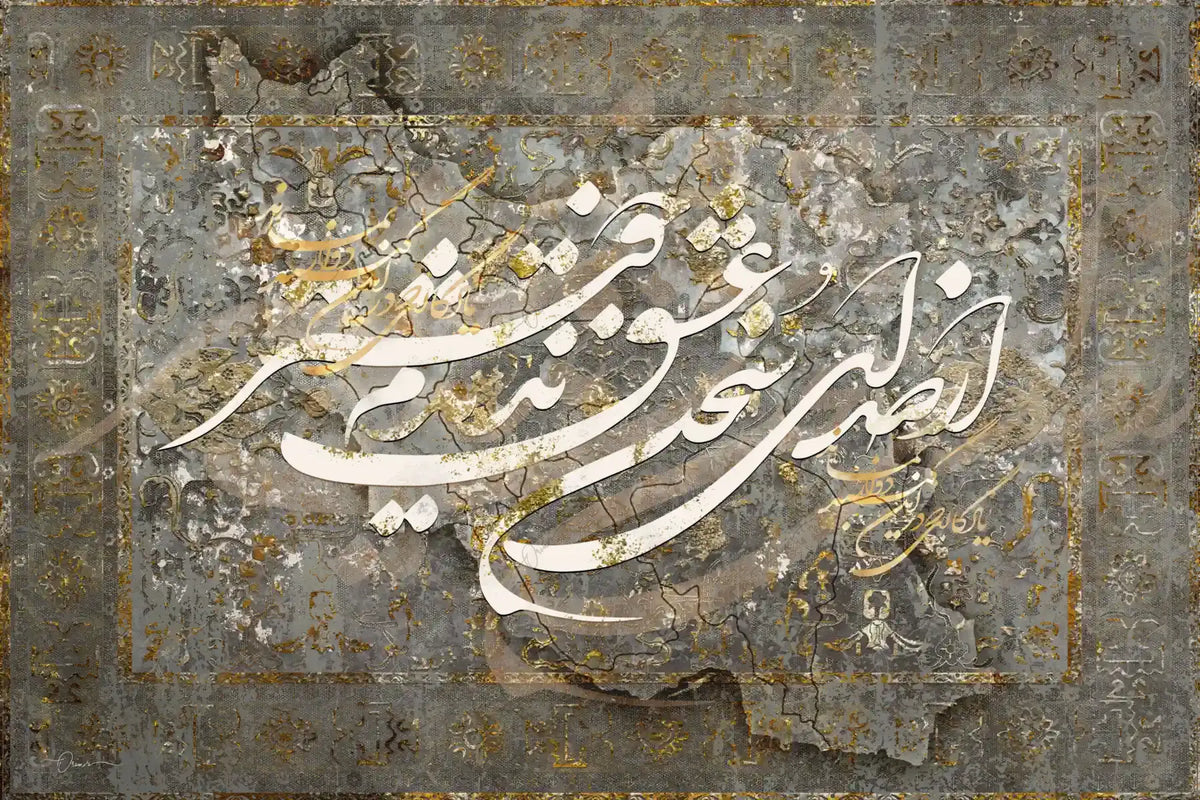 از صدای سخن عشق ندیدم خوشتر
یادگاری که در این گنبد دوار بماند
یادگاری که در این گنبد دوار بماند